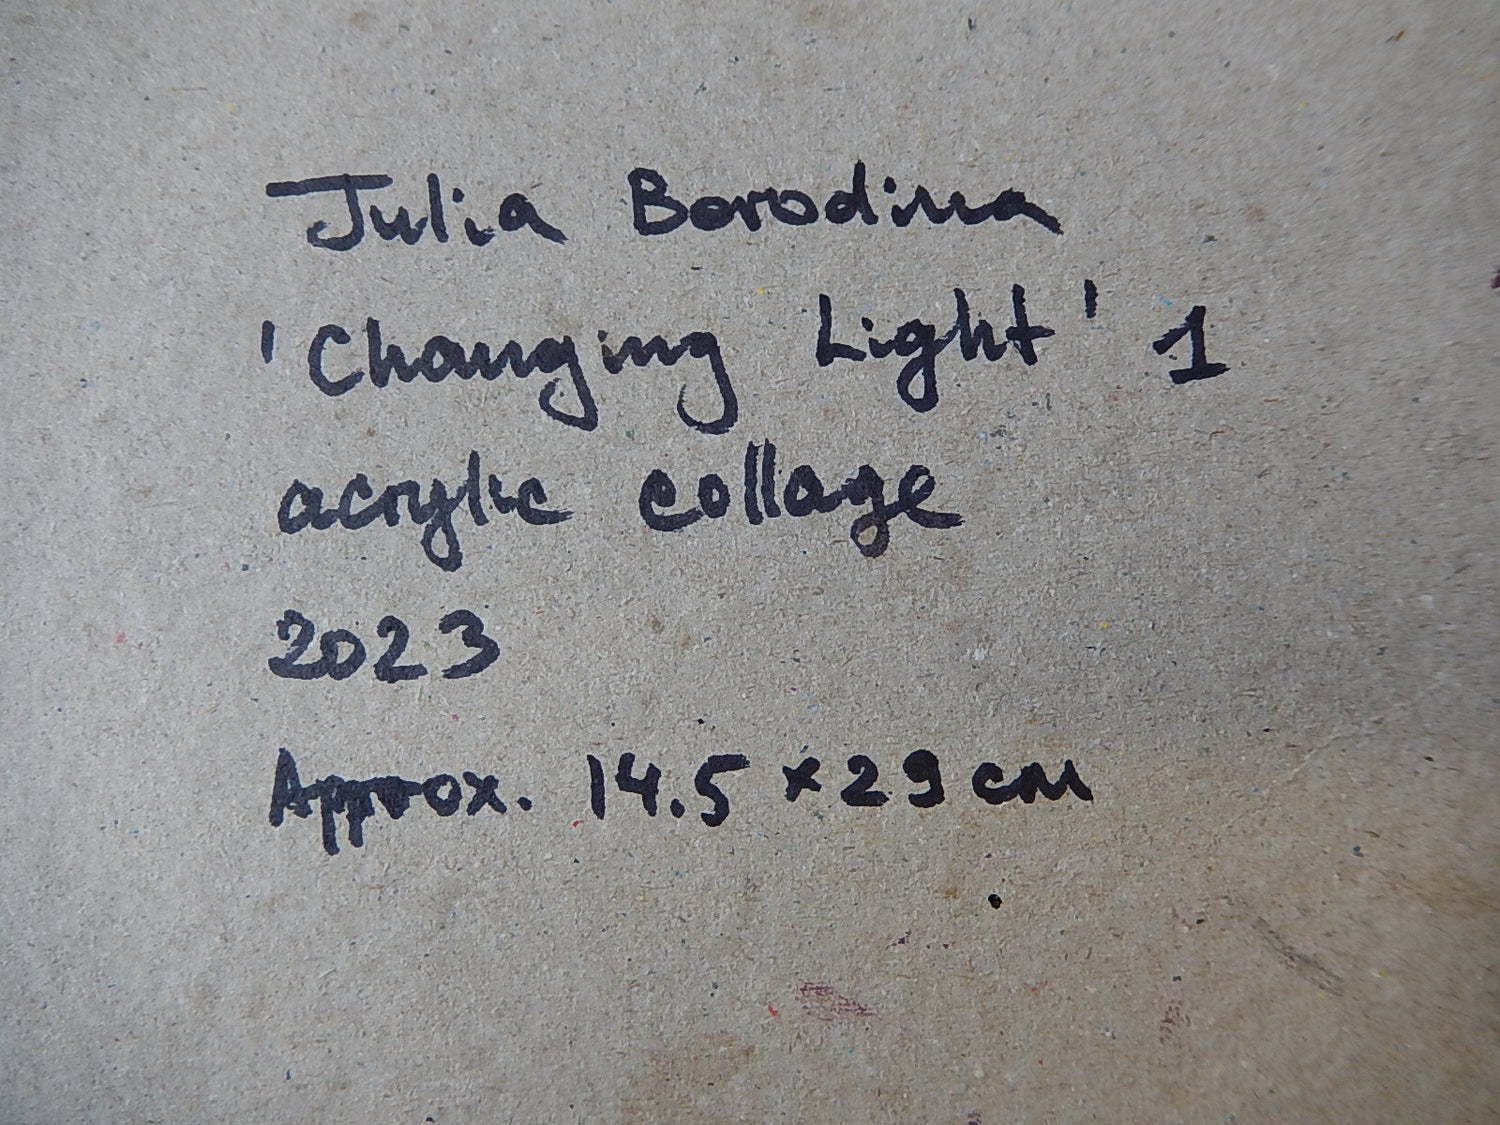 Julia Borodina
'Changing Light' 1
acrylic collage
2023
Approx. 14.5 × 29 cm